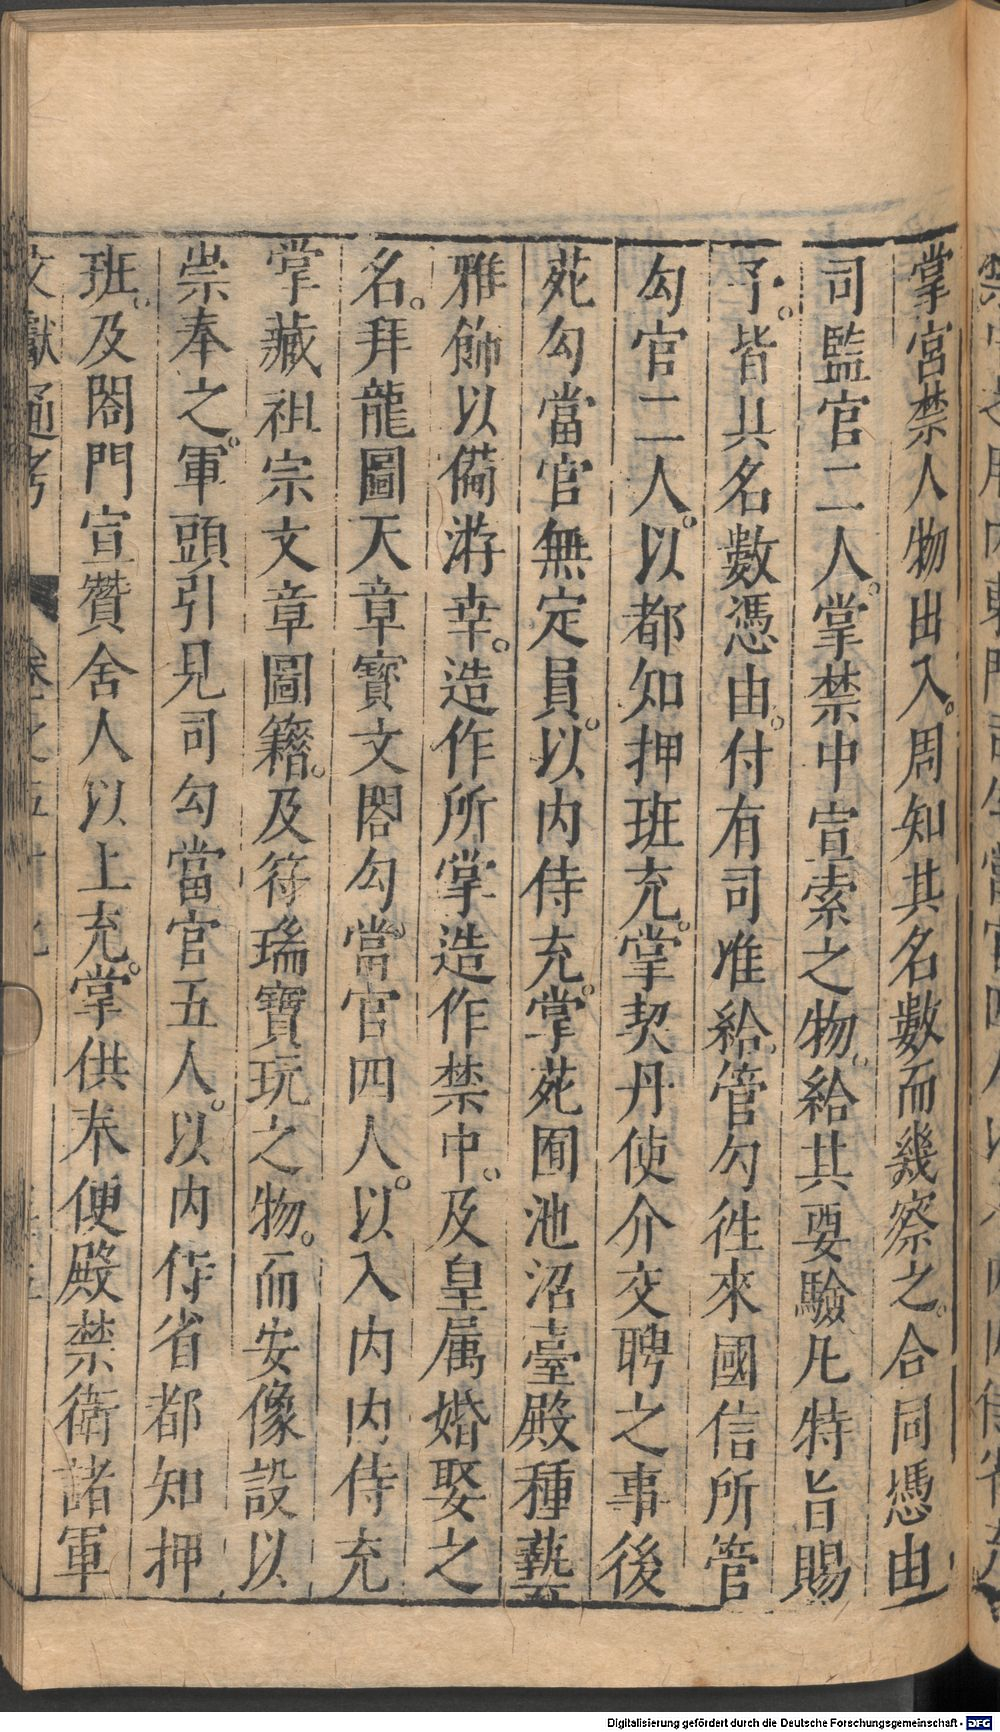 掌宮禁人物出入。周知其名數而幾察之。合同憑由
司監官二人。掌禁中宣索之物。給其要驗。凡特旨賜
予。皆具名數憑由。付有司准給。管勾徃來國信所管
勾官二人。以都知押班充。掌契丹使介交聘之事後
苑勾當官無定員。以内侍充。掌苑囿池沼臺殿種藝
雅飾以備游幸。造作所掌造作禁中。及皇属婚娶之
名。拜龍圖天章寳文閣勾當官四人。以入内内侍充
掌藏祖宗文章圖籍。及符瑞寶玩之物。而安像設以
崇奉之。軍頭引見司勾當官五人。以内侍省都知押
班。及閤門宣贊舍人以上充。掌供奉便殿禁衛諸軍
文獻通考
Digitalisierung gefördert durch die Deutsche Forschungsgemeinschaft - DFG